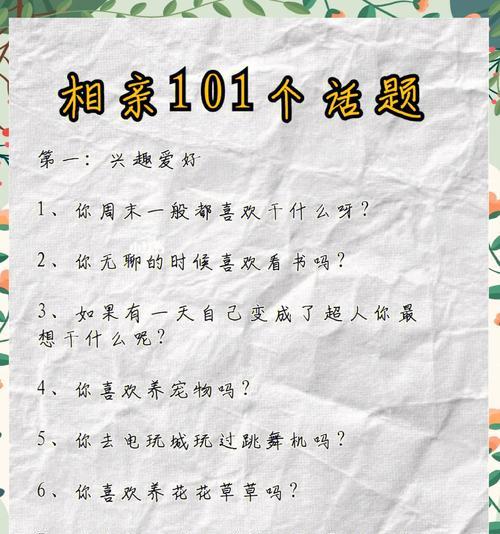 相亲101个话题
第一：兴趣爱好
1、你周末一般都喜欢干什么呀？
2、你无聊的时候喜欢看书吗？
3、如果有一天自己变成了超人你最
想干什么呢？
4、你喜欢养宠物吗？
5、你去电玩城玩过跳舞机吗？
6、你喜欢养花花草草吗？